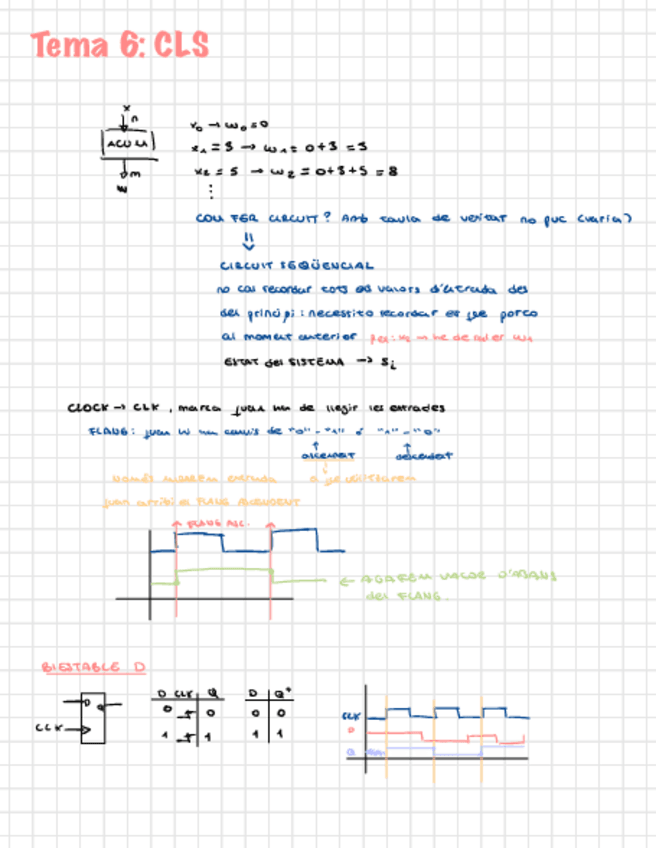 Tema 6: CLS
x
n
ACULA
m
w
x₀ → w₀ = 0
x₁ = 3 → w₁ = 0+3 = 3
x₂ = 5 → w₂ = 0+3+5 = 8
⋮
COM FER CIRCUIT? Amb taula de veritat no puc (varia)
⇓
CIRCUIT SEQÜENCIAL
no cal recordar tots els valors d'entrada des
del principi: necessito recordar el que porto
al moment anterior
ESTAT del SISTEMA → Sᵢ
CLOCK → CLK, marca quan hem de llegir les entrades
FLANC: quan hi ha canvis de "0" - "1" o "1" - "0"
ascendent descendent
Només mirarem entrada
quan arribi el FLANC ASCENDENT
FLANC ASC.
← AGAFEM VALOR D'ABANS
del FLANC.
BIESTABLE D
D Q
CLK
D CLK Q
0 0
1 1
D Q⁺
0 0
1 1
CLK
D
Q